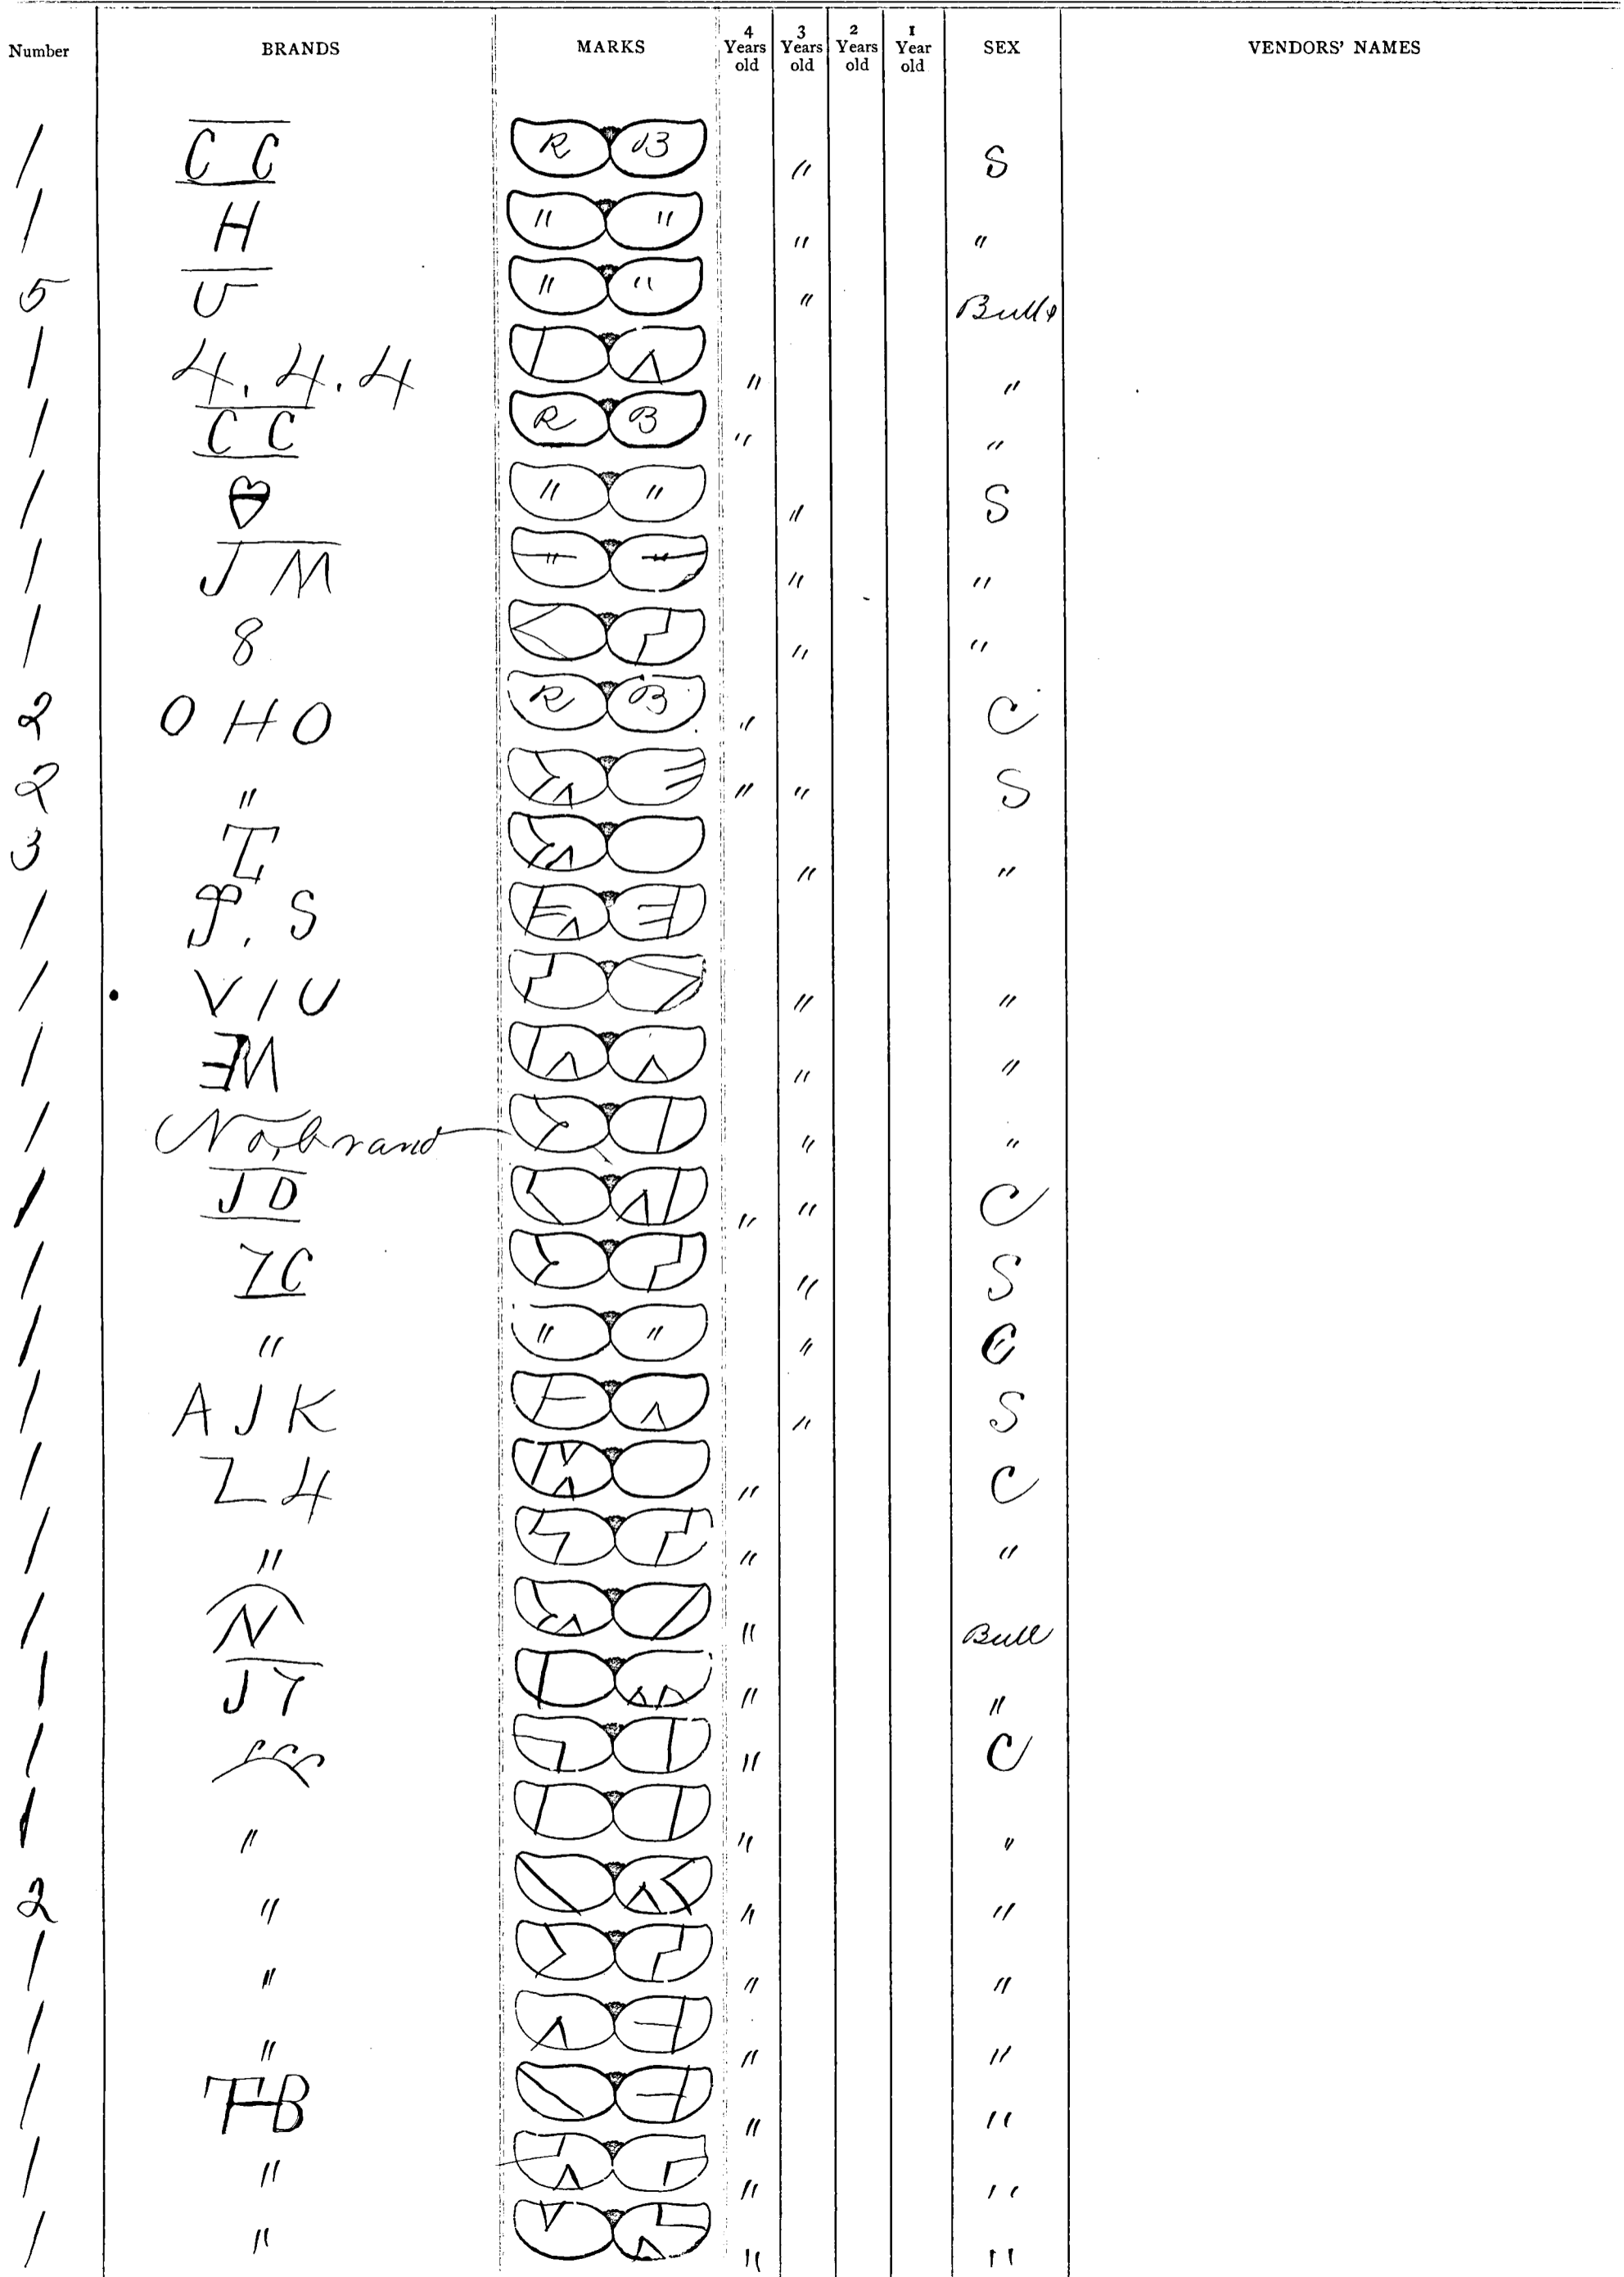 Number BRANDS MARKS 4 Years old 3 Years old 2 Years old 1 Year old SEX VENDORS' NAMES
1 C C R B " S
1 H " " " "
5 U " " " Bulls
1 4.4.4 " "
1 C C R B " "
1 " " " S
1 J M " " " "
1 8 " "
2 O H O R B " C
2 " " " S
3 T " "
1 P. S
1 V I U " "
1 EM " "
1 No brand " "
1 J D " " C
1 7C " S
1 " " " " C
1 A J K " S
1 Z 4 " C
1 " " "
1 N " Bull
1 J 7 " "
1 " C
1 " " "
2 " " "
1 " " "
1 " " "
1 FB " "
1 " " "
1 " " "